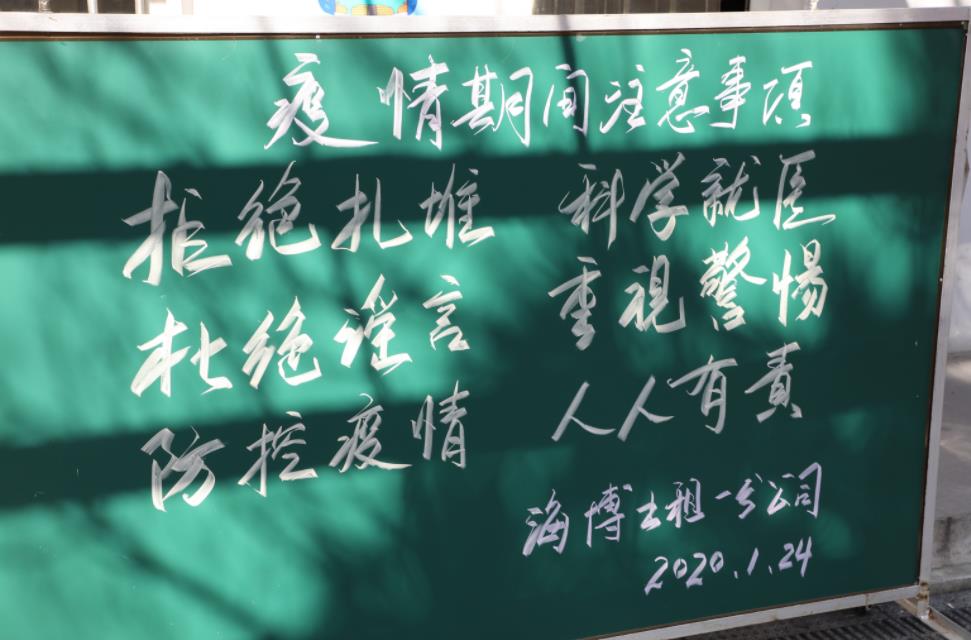 疫情期间注意事项
拒绝扎堆 科学就医
杜绝谣言 重视警惕
防控疫情 人人有責
海博出租一分公司
2020.1.24